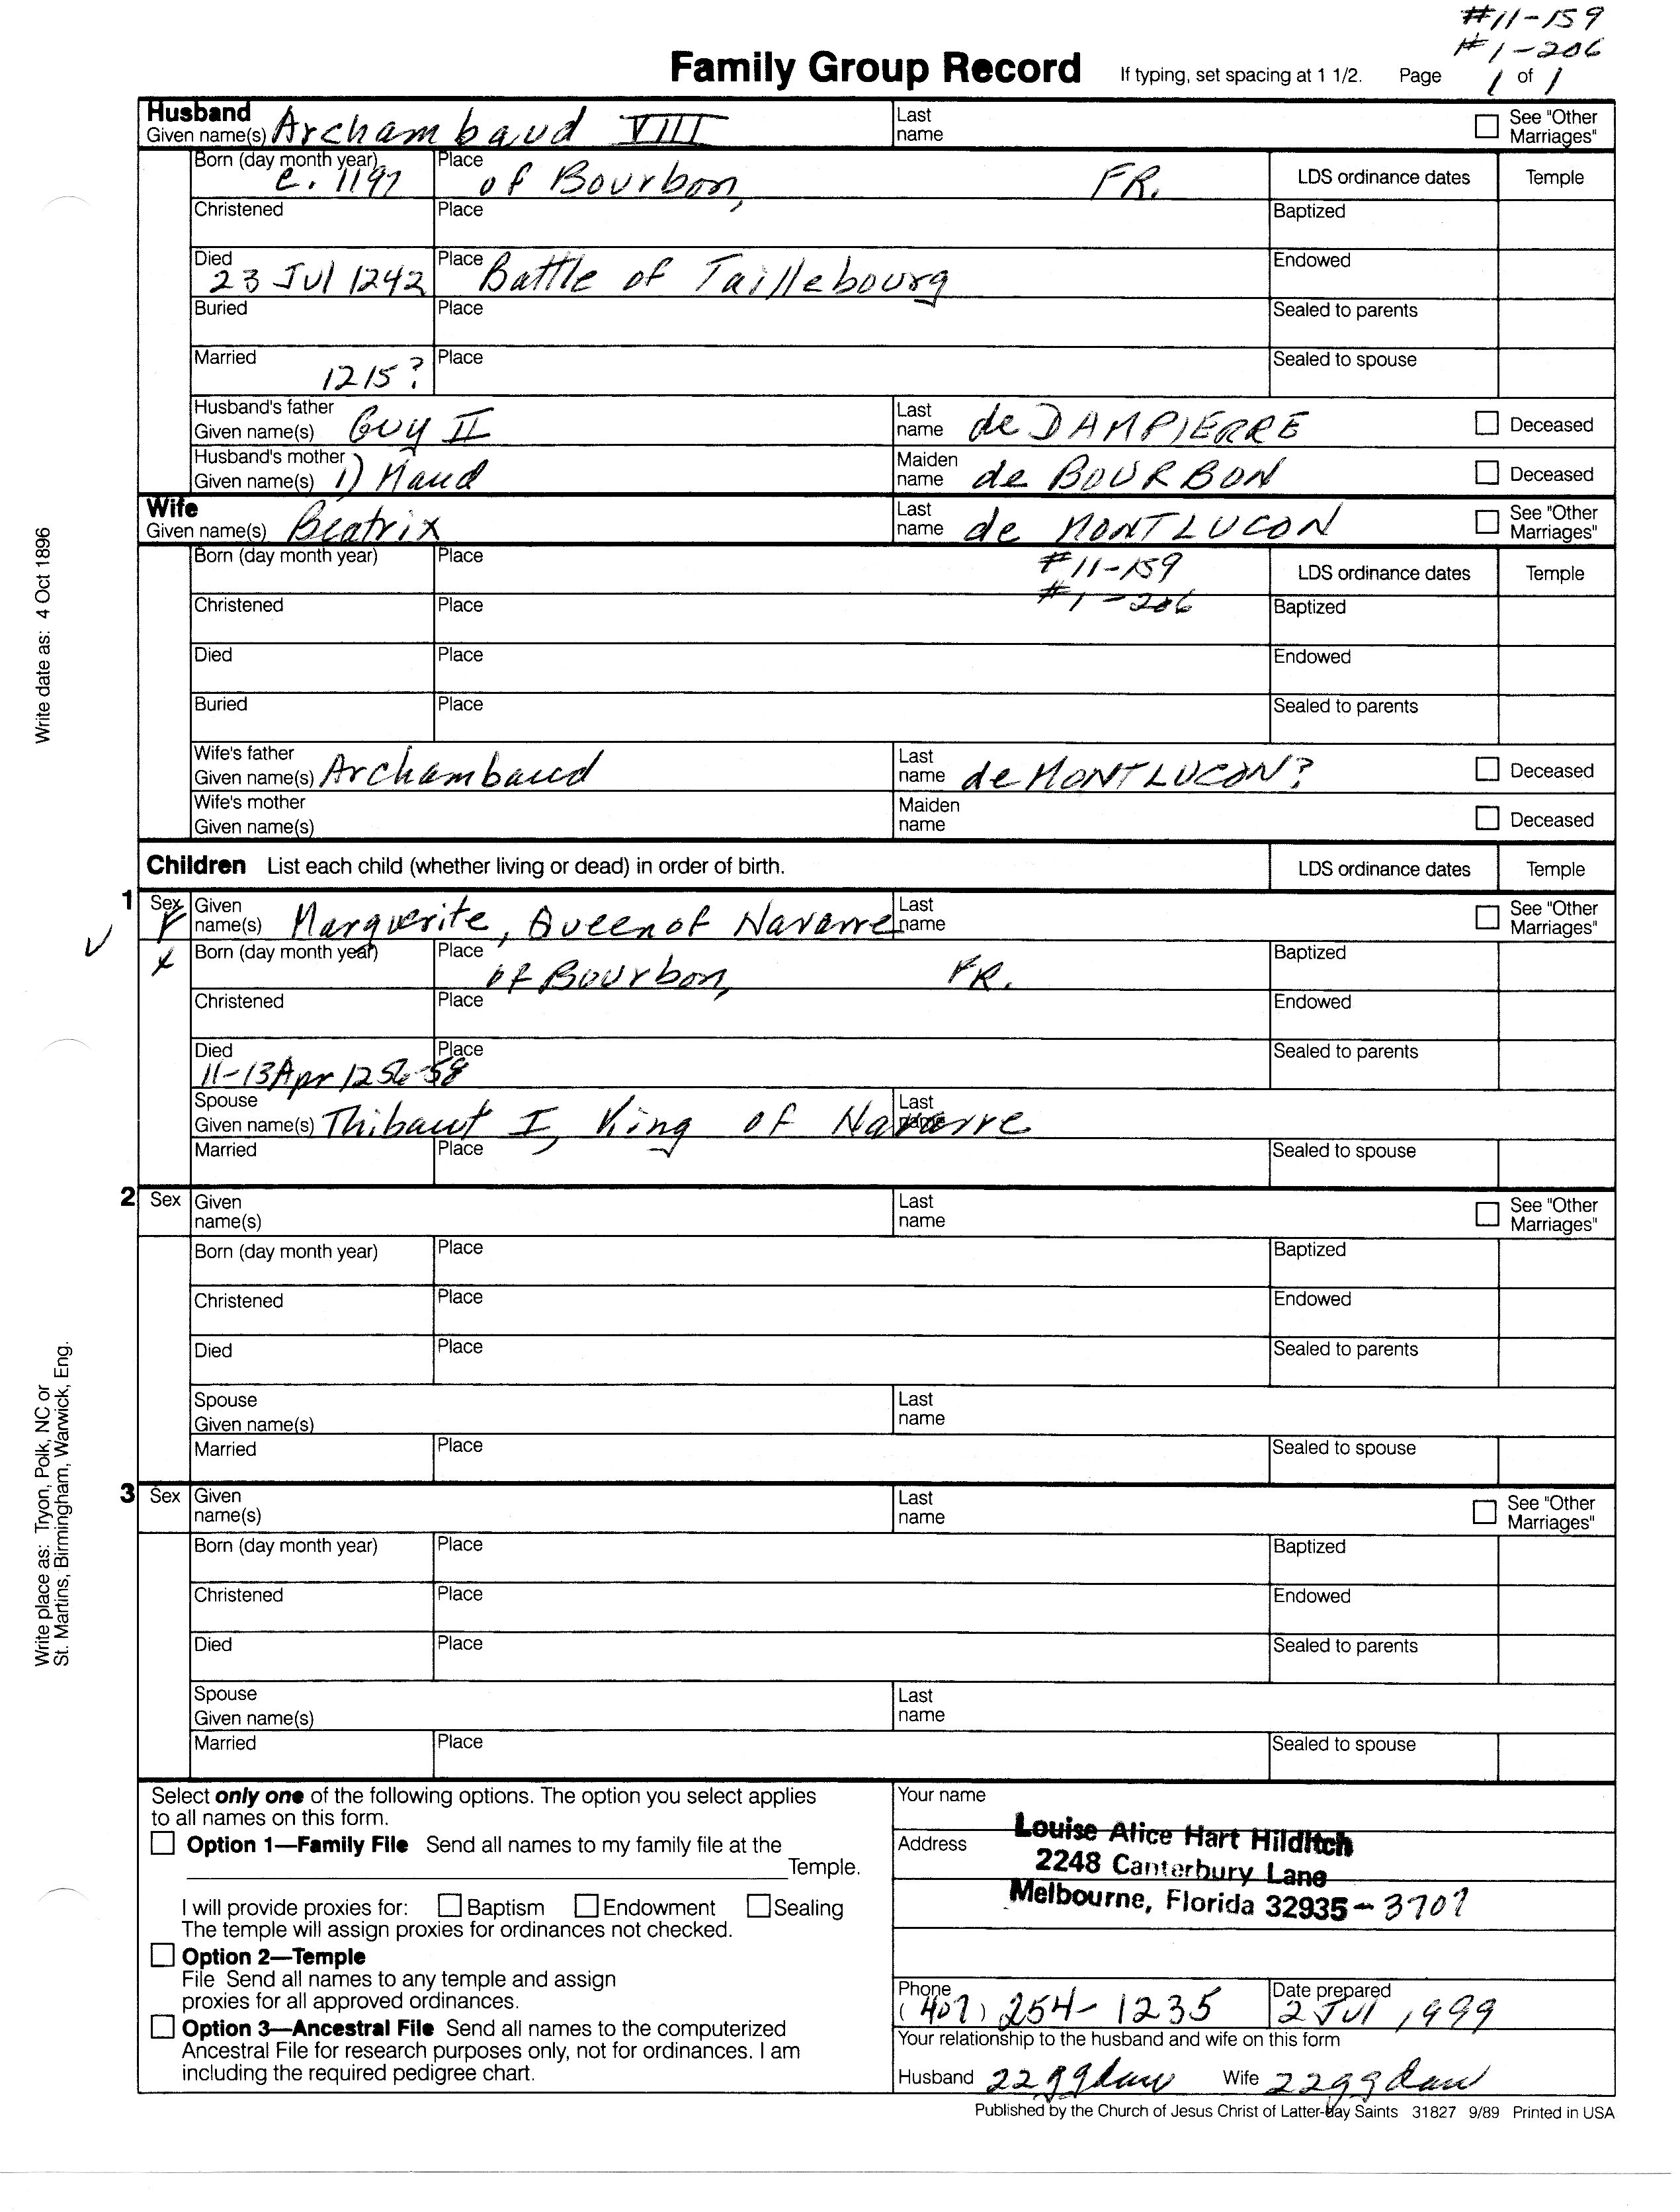 #11-159
#1-206
Family Group Record If typing, set spacing at 1 1/2. Page 1 of 1
Husband
Given name(s) Archambaud VIII Last name See "Other Marriages"
Born (day month year) c. 1197 Place of Bourbon, FR. LDS ordinance dates Temple
Christened Place Baptized
Died 23 Jul 1242 Place Battle of Taillebourg Endowed
Buried Place Sealed to parents
Married 1215? Place Sealed to spouse
Husband's father Given name(s) Guy II Last name de DAMPIERRE Deceased
Husband's mother Given name(s) 1) Maud Maiden name de BOURBON Deceased
Wife
Given name(s) Beatrix Last name de MONTLUCON See "Other Marriages"
Born (day month year) Place #11-159 LDS ordinance dates Temple
Christened Place #1-206 Baptized
Died Place Endowed
Buried Place Sealed to parents
Wife's father Given name(s) Archambaud Last name de MONTLUCON? Deceased
Wife's mother Given name(s) Maiden name Deceased
Children List each child (whether living or dead) in order of birth. LDS ordinance dates Temple
1 Sex F Given name(s) Marguerite, Queen of Navarre Last name See "Other Marriages"
Born (day month year) Place of Bourbon, FR. Baptized
Christened Place Endowed
Died 11-13 Apr 1256-58 Place Sealed to parents
Spouse Given name(s) Thibaut I, King of Navarre Last name
Married Place Sealed to spouse
2 Sex Given name(s) Last name See "Other Marriages"
Born (day month year) Place Baptized
Christened Place Endowed
Died Place Sealed to parents
Spouse Given name(s) Last name
Married Place Sealed to spouse
3 Sex Given name(s) Last name See "Other Marriages"
Born (day month year) Place Baptized
Christened Place Endowed
Died Place Sealed to parents
Spouse Given name(s) Last name
Married Place Sealed to spouse
Select only one of the following options. The option you select applies
to all names on this form.
Option 1—Family File Send all names to my family file at the
Temple.
I will provide proxies for: Baptism Endowment Sealing
The temple will assign proxies for ordinances not checked.
Option 2—Temple
File Send all names to any temple and assign
proxies for all approved ordinances.
Option 3—Ancestral File Send all names to the computerized
Ancestral File for research purposes only, not for ordinances. I am
including the required pedigree chart.
Your name
Louise Alice Hart Hilditch
Address
2248 Canterbury Lane
Melbourne, Florida 32935-3707
Phone (407) 254-1235 Date prepared 2 Jul 1999
Your relationship to the husband and wife on this form
Husband 22ggdau Wife 22ggdau
Published by the Church of Jesus Christ of Latter-day Saints 31827 9/89 Printed in USA
Write date as: 4 Oct 1896
Write place as: Tryon, Polk, NC or
St. Martins, Birmingham, Warwick, Eng.